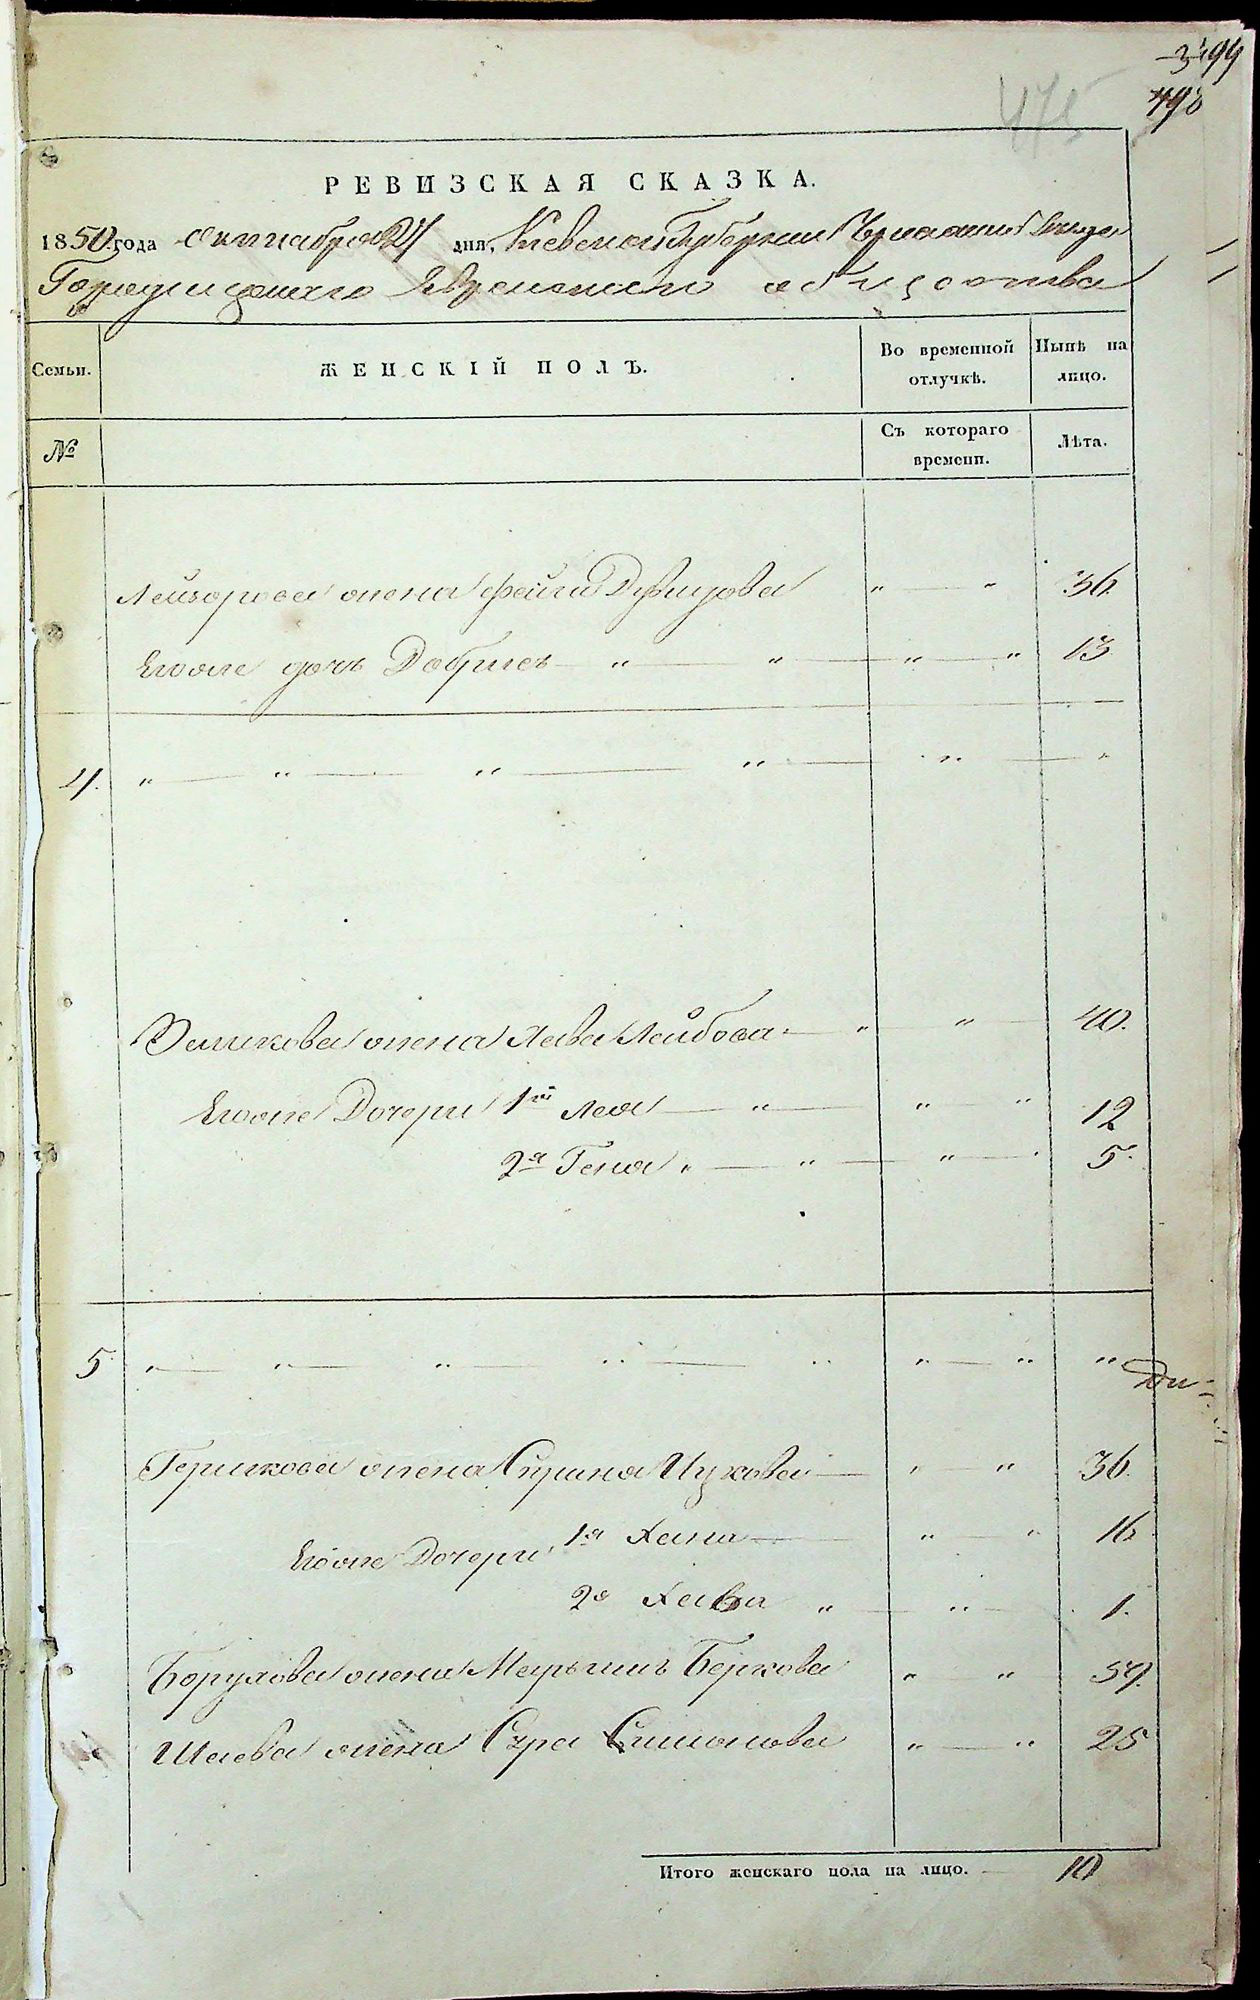 499
498
475
РЕВИЗСКАЯ СКАЗКА.
1850 года Октября 27 дня, Киевской Губернии Черкаскаго Уезда
Городищенскаго Еврейскаго общества
Семьи. ЖЕНСКІЙ ПОЛЪ. Во временной отлучкѣ. Нынѣ на лицо.
№ Съ котораго времени. Лѣта.
Лейзорова жена Фейга Давидова " — " 36.
Егоже дочь Добрись — " — " — " — " 13
4. " — " — " — " — " — "
жена Хава Лейбова — " " 40.
Егоже Дочери 1я Лея — " — " " 12
2я Геня " — " — " — 5.
5 " — " — " — " — " " — " "
Гершкова жена Сприна Ицкова — " " 36.
Егоже Дочери 1я Хана — " — " 16.
2я Хава " — " — 1.
Борухова жена Марьямъ Беркова " " 59.
Шаева жена Сура Симонова " — " 25
Итого женскаго пола на лицо. — 10